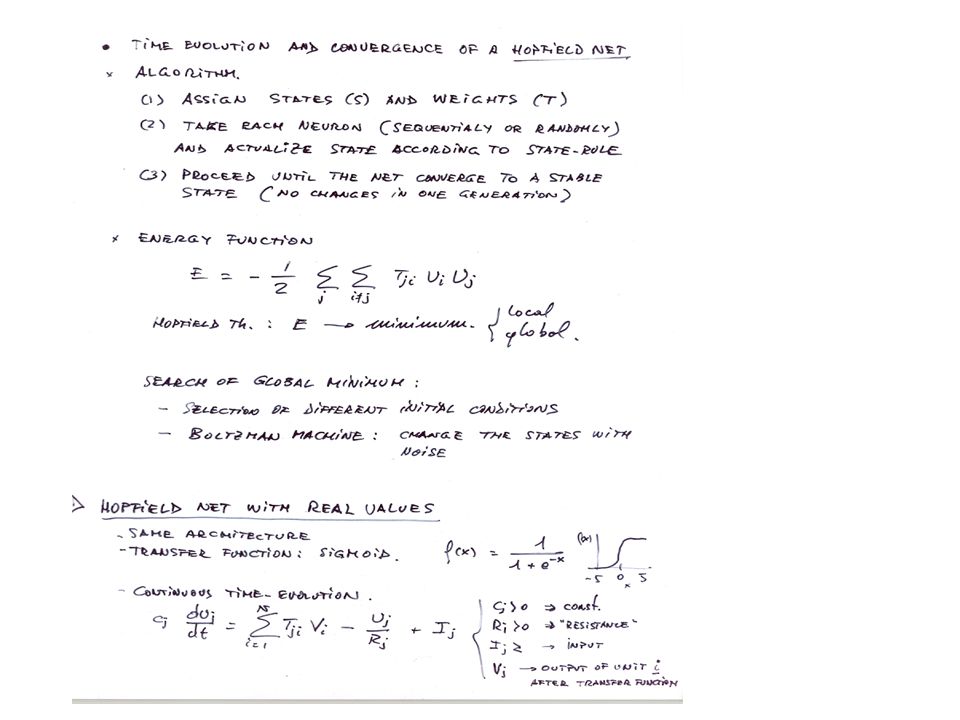 • TIME EVOLUTION AND CONVERGENCE OF A HOPFIELD NET
× ALGORITHM.
(1) ASSIGN STATES (S) AND WEIGHTS (T)
(2) TAKE EACH NEURON (SEQUENTIALY OR RANDOMLY)
AND ACTUALIZE STATE ACCORDING TO STATE-RULE
(3) PROCEED UNTIL THE NET CONVERGE TO A STABLE
STATE (NO CHANGES IN ONE GENERATION)
× ENERGY FUNCTION
E = - 1/2 Σ_j Σ_{i≠j} T_ji U_i U_j
HOPFIELD Th. : E → minimum. { local
global.
SEARCH OF GLOBAL MINIMUM :
- SELECTION OF DIFFERENT INITIAL CONDITIONS
- BOLTZMAN MACHINE : CHANGE THE STATES WITH
NOISE
HOPFIELD NET WITH REAL VALUES
- SAME ARCHITECTURE
- TRANSFER FUNCTION : SIGMOID. f(x) = 1/(1 + e^-x) f(x)
-5 0 x 5
- CONTINUOUS TIME-EVOLUTION.
C_j dU_j/dt = Σ_{i=1}^N T_ji V_i - U_j/R_j + I_j
C_j > 0 ⇒ const.
R_j > 0 ⇒ "RESISTANCE"
I_j ≥ → INPUT
V_j → OUTPUT OF UNIT i
AFTER TRANSFER FUNCTION